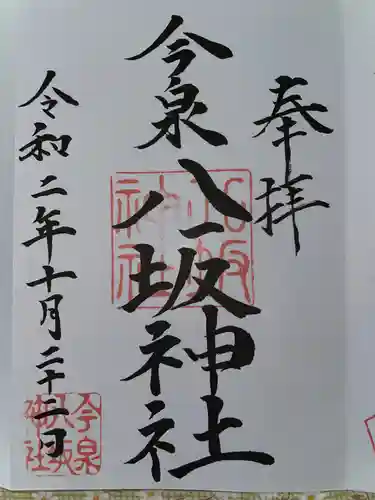 奉拝
今泉八坂神社
令和二年十月二十二日
八坂神社
今泉八坂神社